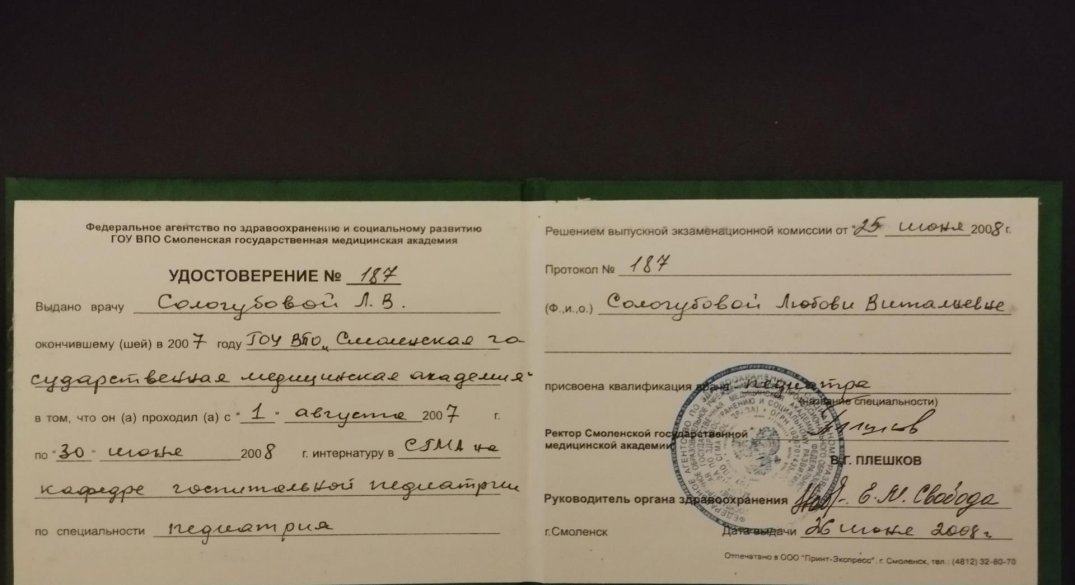 Федеральное агентство по здравоохранению и социальному развитию
ГОУ ВПО Смоленская государственная медицинская академия
УДОСТОВЕРЕНИЕ № 187
Выдано врачу Сологубовой Л. В.
окончившему (шей) в 2007 году ГОУ ВПО „Смоленская го
сударственная медицинская академия"
в том, что он (а) проходил (а) с "1" августа 2007 г.
по "30" июня 2008 г. интернатуру в СГМА на
кафедре госпитальной педиатрии
по специальности педиатрия
Решением выпускной экзаменационной комиссии от "25" июня 2008 г.
Протокол № 187
(Ф.,и.,о.) Сологубовой Любови Витальевне
присвоена квалификация врача педиатра
(название специальности)
Ректор Смоленской государственной
медицинской академии
В.Г. ПЛЕШКОВ
Руководитель органа здравоохранения Е.М. Свобода
г.Смоленск Дата выдачи 26 июня 2008 г.
Отпечатано в ООО "Принт-Экспресс", г. Смоленск, тел.: (4812) 32-80-70